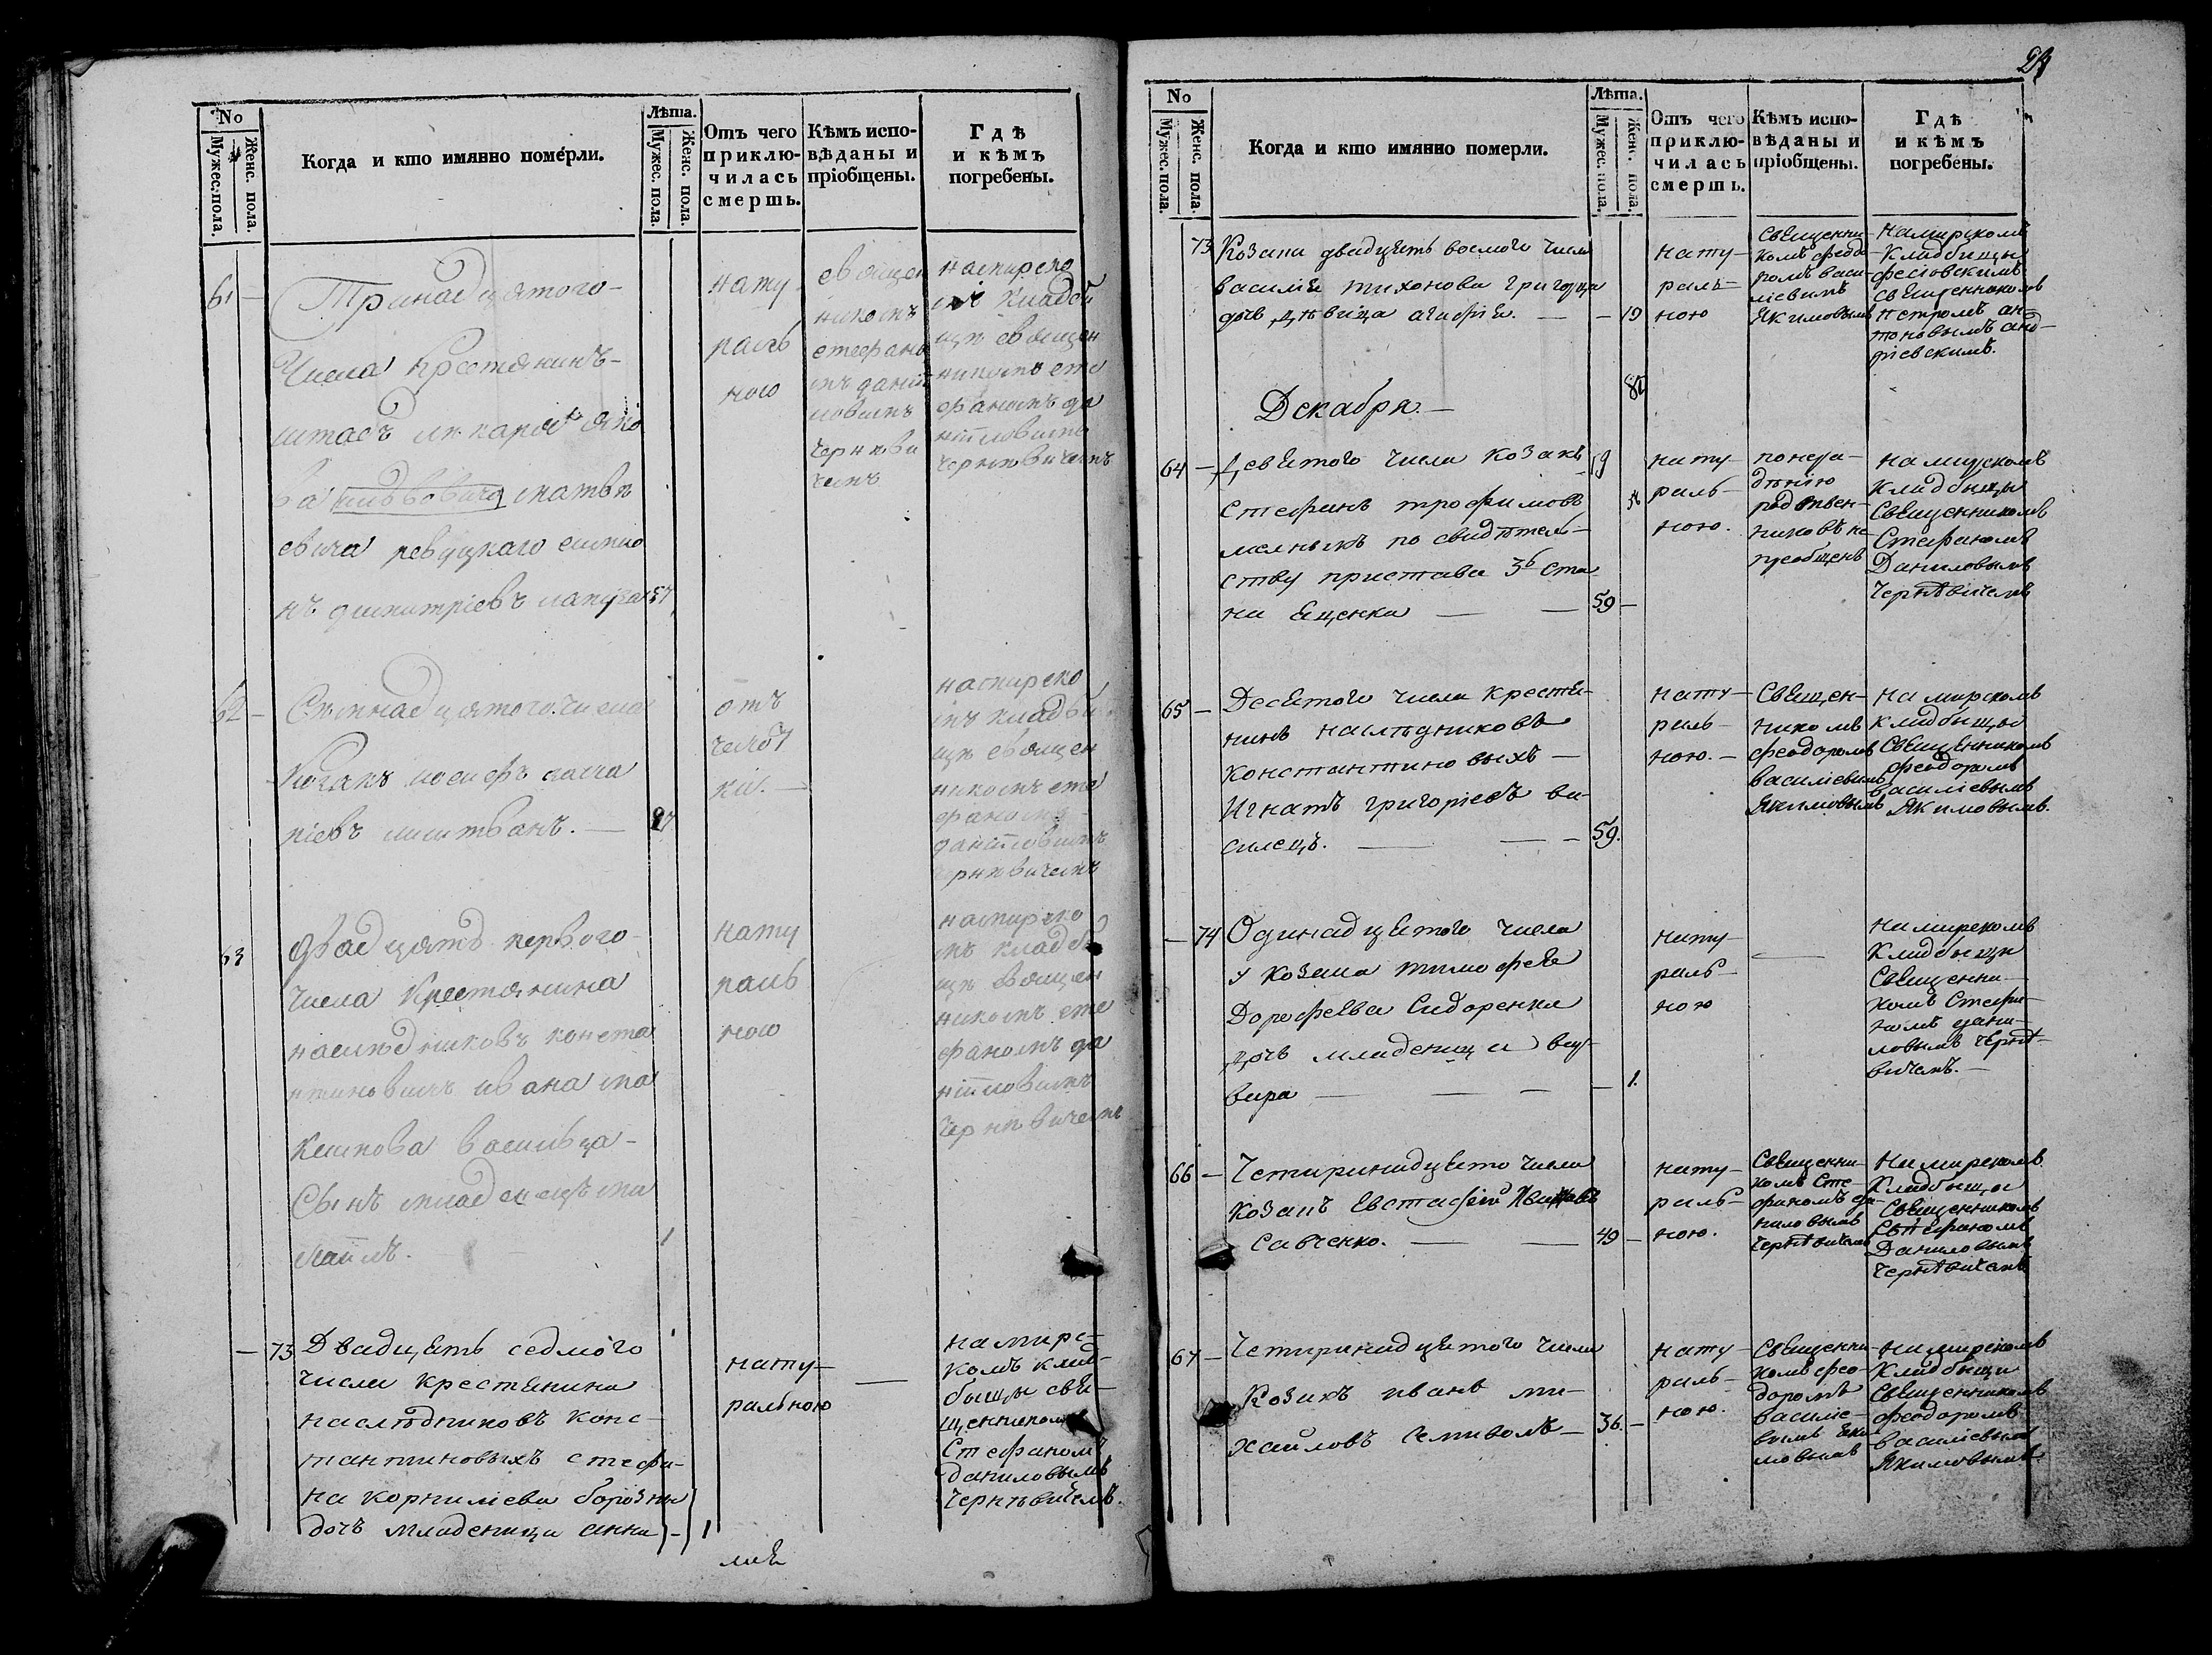 No
Мужес. пола.
Женс. пола.
Когда и кто имянно помéрли.
Лѣта.
Мужес. пола.
Женс. пола.
Отъ чего
приклю-
чилась
смерть.
Кѣмъ испо-
вѣданы и
пріобщены.
Гдѣ
и кѣмъ
погребены.
61 —
Тринадцятого
Числа Крестянинъ
матвѣ
евича ревуцкаго
нъ димитріевъ 57
нату
раль
ною
священ
никомъ
стефано
мъ дани
ловимъ
Чернѣви
чемъ
намирско
мъ кладби
щѣ священ
никомъ сте
фаномъ да
ніиловимъ
Чернѣвичемъ
62 —
Семнадцятого Числа
Козакъ иосифъ
ріевъ литванъ. —
отъ
намирско
мъ кладби
щѣ священ
никомъ сте
фаномъ
даніиловимъ
чернѣвичемъ
63
Двадцять первого
Числа Крестянина
наслѣдниковъ конста
нтиновихъ ивана ма
ксимова василца
Сынъ младенецъ ма
1
нату
раль
ною
намирско
мъ кладби
щѣ священ
никомъ сте
фаномъ да
ніиловимъ
Чернѣвичемъ
— 73
Двадцять седмого
числа крестянина
наслѣдниковъ конс-
тантиновыхъ стефа-
на корниліева борозны
дочъ младенища анна — 1
нату-
ральною
—
на мирс-
комъ клад-
бищи свя-
щенникомъ
Стефаномъ
даниловымъ
Чернѣвичемъ.
24
No
Мужес. пола.
Женс. пола.
Когда и кто имянно померли.
Лѣта.
Мужес. пола.
Женс. пола.
Отъ чего
приклю-
чилась
смерть.
Кѣмъ испо-
вѣданы и
пріобщены.
Гдѣ
и кѣмъ
погребены.
73
Козака двадцять восмого числа
василія тихонова григорца
дочъ дѣвица агафія. — — 19
нату-
раль-
ною
Священни-
комъ феодо-
ромъ васи-
ліевимъ
Якимовымъ
На мирскомъ
Кладбищи
священникомъ
петромъ ан-
тоновымъ анд-
ріевскимъ.
Декабря. —
64 —
Девятого числа козакъ 59
Стефанъ трофимовъ
мелникъ по свидѣтель-
ству пристава 3ь ста
на Яценка — — 59 —
нату-
раль-
ною.
по нера-
дѣнію
родствен-
никовъ не
преобщенъ
на мирскомъ
Кладбищи
Священникомъ
Стефаномъ
Даниловымъ
Чернѣвичемъ
65 —
Десятого числа крестя-
нинъ наслѣдниковъ
константиновыхъ —
Игнатъ григоріевъ ва-
силецъ. — — — 59.
нату-
раль-
ною. —
Священ-
никомъ
феодоромъ
василіевимъ
Якимовымъ
на мирскомъ
кладбищи
Священникомъ
феодоромъ
василіевымъ
Якимовымъ.
— 74
Одинадцятого числа
у козака тимофея
Дорофеева Сидоренка
дочъ младенища вар-
вара — — — — 1.
нату-
раль-
ною
—
на мирскомъ
Кладбищи
Священни-
комъ Стефа-
номъ дани-
ловымъ Чернѣ-
вичемъ. —
66 —
Четиринадцято числа
козакъ Евстафій Ивановъ
Савченко. — — 49 —
нату-
раль-
ною.
Священни-
комъ Сте-
фаномъ да-
ниловымъ
Чернѣвичемъ
На мирскомъ
Кладбищи
Священникомъ
Стефаномъ
Даниловымъ
Чернѣвичемъ
67 —
Четиринадцятого числа
Козакъ иванъ ми-
хайловъ Семиволъ — 36. —
нату-
раль-
ною.
Священни-
комъ фео-
доромъ
василіе-
вымъ Яки-
мовымъ
на мирскомъ
Кладбищи
Священникомъ
феодоромъ
василіевымъ
Якимовымъ